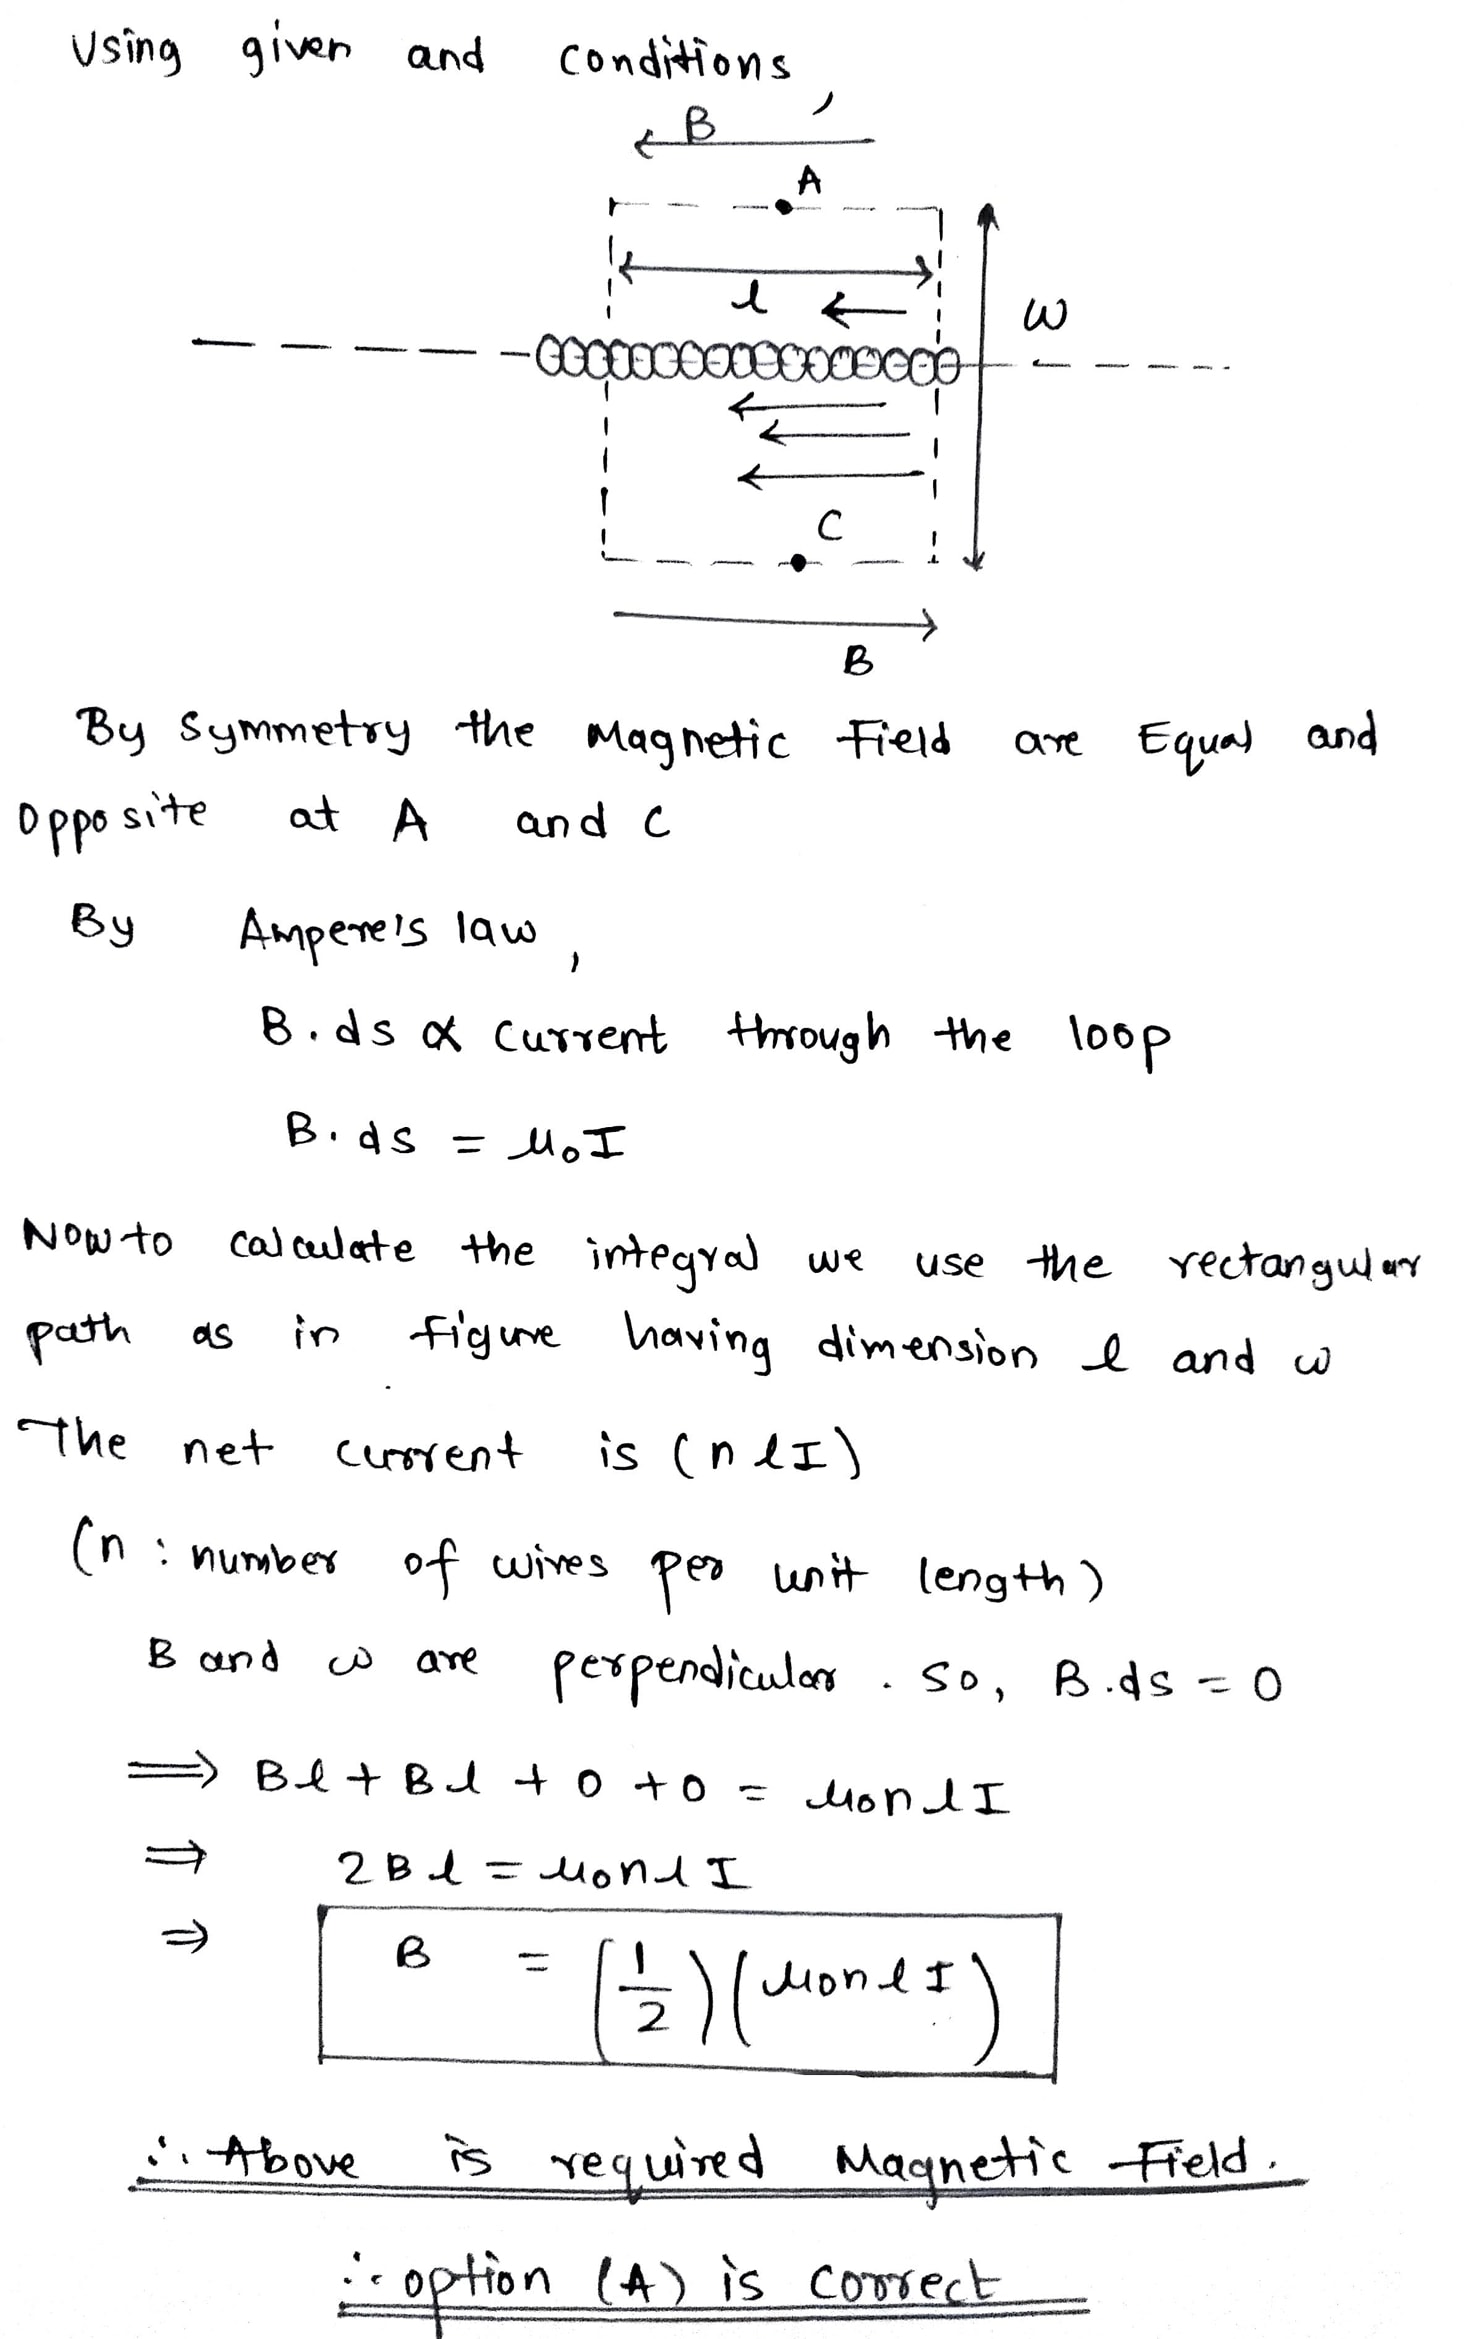 Using given and conditions,
B
A
l
w
C
B
By Symmetry the Magnetic Field are Equal and
Opposite at A and C
By Ampere's law,
B.ds α Current through the loop
B.ds = μ₀I
Now to calculate the integral we use the rectangular
path as in figure having dimension l and w
The net current is (nlI)
(n : number of wires per unit length)
B and w are perpendicular. So, B.ds = 0
⇒ Bl + Bl + 0 + 0 = μ₀nlI
⇒ 2Bl = μ₀nlI
⇒ B = (1/2)(μ₀nlI)
∴ Above is required Magnetic Field.
∴ option (A) is correct